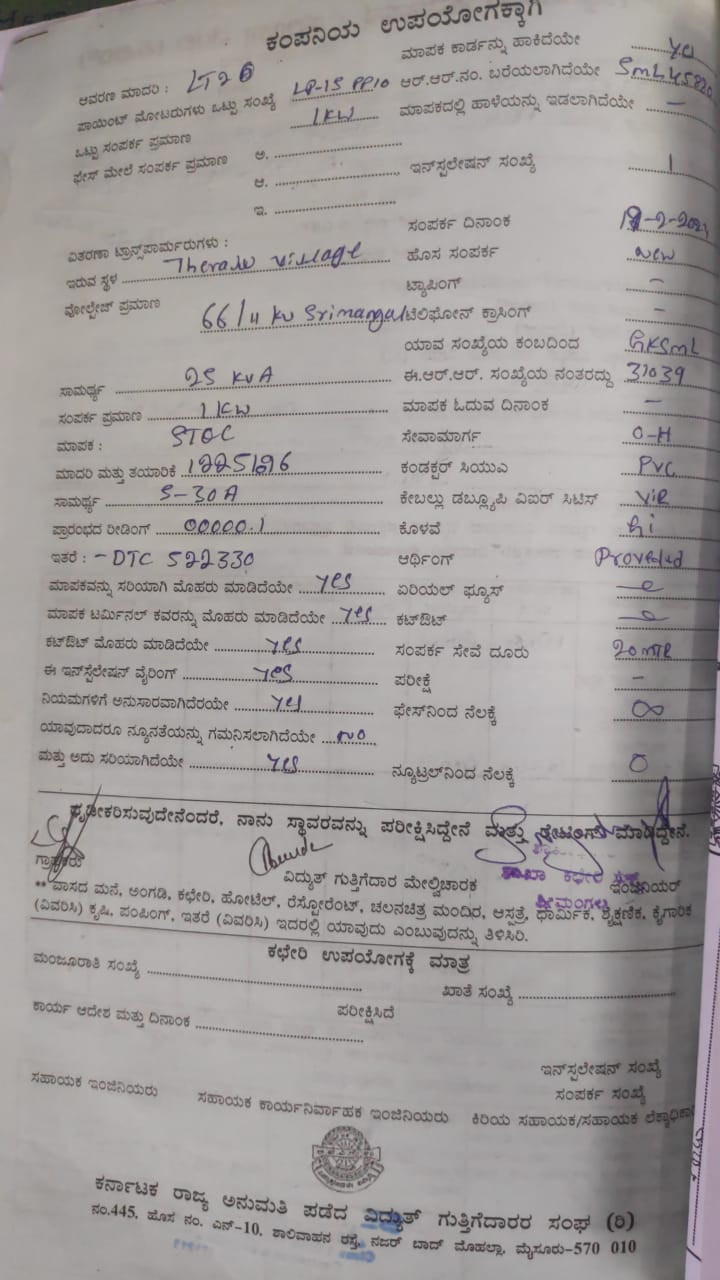 ಕಂಪನಿಯ ಉಪಯೋಗಕ್ಕಾಗಿ
ಮಾಪಕ ಕಾರ್ಡನ್ನು ಹಾಕಿದೆಯೇ yes
ಆವರಣ ಮಾದರಿ : LT2
ಆರ್.ಆರ್.ನಂ. ಬರೆಯಲಾಗಿದೆಯೇ SML45820
ಪಾಯಿಂಟ್ ಮೋಟರುಗಳು ಒಟ್ಟು ಸಂಖ್ಯೆ LP-15 PP10
ಮಾಪಕದಲ್ಲಿ ಹಾಳೆಯನ್ನು ಇಡಲಾಗಿದೆಯೇ –
ಒಟ್ಟು ಸಂಪರ್ಕ ಪ್ರಮಾಣ 1KW
ಫೇಸ್ ಮೇಲೆ ಸಂಪರ್ಕ ಪ್ರಮಾಣ ಅ.
ಇನ್‌ಸ್ಪಲೇಷನ್ ಸಂಖ್ಯೆ 1
ಆ.
ಇ.
ಸಂಪರ್ಕ ದಿನಾಂಕ
ವಿತರಣಾ ಟ್ರಾನ್ಸ್‌ಪಾರ್ಮರುಗಳು :
ಹೊಸ ಸಂಪರ್ಕ New
ಇರುವ ಸ್ಥಳ Theralu village
ಟ್ಯಾಪಿಂಗ್ –
ವೋಲ್ಟೇಜ್ ಪ್ರಮಾಣ 66/11 KV Srimangal
ಟೆಲಿಫೋನ್ ಕ್ರಾಸಿಂಗ್ –
ಯಾವ ಸಂಖ್ಯೆಯ ಕಂಬದಿಂದ GKSML
ಸಾಮರ್ಥ್ಯ 25 KVA
ಈ.ಆರ್.ಆರ್. ಸಂಖ್ಯೆಯ ನಂತರದ್ದು 31039
ಸಂಪರ್ಕ ಪ್ರಮಾಣ 1 KW
ಮಾಪಕ ಓದುವ ದಿನಾಂಕ –
ಮಾಪಕ :
ಸೇವಾಮಾರ್ಗ O-H
ಮಾದರಿ ಮತ್ತು ತಯಾರಿಕೆ
ಕಂಡಕ್ಟರ್ ಸಿಯುಎ PVC
ಸಾಮರ್ಥ್ಯ 5-30A
ಕೇಬಲ್ಲು ಡಬ್ಲ್ಯೂಪಿ ವಿಐರ್ ಸಿಟಿಸ್ VIR
ಪ್ರಾರಂಭದ ರೀಡಿಂಗ್ 00000.1
ಕೊಳವೆ Gi
ಇತರೆ : – DTC 522330
ಆರ್ಥಿಂಗ್ Proveded
ಮಾಪಕವನ್ನು ಸರಿಯಾಗಿ ಮೊಹರು ಮಾಡಿದೆಯೇ yes
ಏರಿಯಲ್ ಫ್ಯೂಸ್
ಮಾಪಕ ಟರ್ಮಿನಲ್ ಕವರನ್ನು ಮೊಹರು ಮಾಡಿದೆಯೇ yes
ಕಟ್‌ಔಟ್
ಕಟ್‌ಔಟ್ ಮೊಹರು ಮಾಡಿದೆಯೇ yes
ಸಂಪರ್ಕ ಸೇವೆ ದೂರು 20 MTR
ಈ ಇನ್‌ಸ್ಪೆಲೇಷನ್ ವೈರಿಂಗ್ yes
ಪರೀಕ್ಷೆ –
ನಿಯಮಗಳಿಗೆ ಅನುಸಾರವಾಗಿದೆರಯೇ yes
ಫೇಸ್‌ನಿಂದ ನೆಲಕ್ಕೆ ∞
ಯಾವುದಾದರೂ ನ್ಯೂನತೆಯನ್ನು ಗಮನಿಸಲಾಗಿದೆಯೇ no
ಮತ್ತು ಅದು ಸರಿಯಾಗಿದೆಯೇ yes
ನ್ಯೂಟ್ರಲ್‌ನಿಂದ ನೆಲಕ್ಕೆ 0
ದೃಢೀಕರಿಸುವುದೇನೆಂದರೆ, ನಾನು ಸ್ಥಾವರವನ್ನು ಪರೀಕ್ಷಿಸಿದ್ದೇನೆ ಮತ್ತು ಮಾಡಿದ್ದೇನೆ.
ಗ್ರಾಹಕರು
ವಿದ್ಯುತ್ ಗುತ್ತಿಗೆದಾರ ಮೇಲ್ವಿಚಾರಕ
ಶಾಖಾ ಕಛೇರಿ
ಇಂಜಿನಿಯರ್
ಶ್ರೀಮಂಗಲ
** ವಾಸದ ಮನೆ, ಅಂಗಡಿ, ಕಛೇರಿ, ಹೋಟೆಲ್, ರೆಸ್ಟೋರೆಂಟ್, ಚಲನಚಿತ್ರ ಮಂದಿರ, ಆಸ್ಪತ್ರೆ, ಧಾರ್ಮಿಕ, ಶೈಕ್ಷಣಿಕ, ಕೈಗಾರಿಕ
(ವಿವರಿಸಿ) ಕೃಷಿ, ಪಂಪಿಂಗ್, ಇತರೆ (ವಿವರಿಸಿ) ಇದರಲ್ಲಿ ಯಾವುದು ಎಂಬುವುದನ್ನು ತಿಳಿಸಿರಿ.
ಕಛೇರಿ ಉಪಯೋಗಕ್ಕೆ ಮಾತ್ರ
ಮಂಜೂರಾತಿ ಸಂಖ್ಯೆ
ಖಾತೆ ಸಂಖ್ಯೆ
ಪರೀಕ್ಷಿಸಿದೆ
ಕಾರ್ಯ ಆದೇಶ ಮತ್ತು ದಿನಾಂಕ
ಇನ್‌ಸ್ಪಲೇಷನ್ ಸಂಖ್ಯೆ
ಸಂಪರ್ಕ ಸಂಖ್ಯೆ
ಸಹಾಯಕ ಇಂಜಿನಿಯರು ಸಹಾಯಕ ಕಾರ್ಯನಿರ್ವಾಹಕ ಇಂಜಿನಿಯರು ಕಿರಿಯ ಸಹಾಯಕ/ಸಹಾಯಕ ಲೆಕ್ಕಾಧಿಕಾರಿ
ಕರ್ನಾಟಕ ರಾಜ್ಯ ಅನುಮತಿ ಪಡೆದ ವಿದ್ಯುತ್ ಗುತ್ತಿಗೆದಾರರ ಸಂಘ (ರಿ)
ನಂ.445, ಹೊಸ ನಂ. ಎನ್-10, ಶಾಲಿವಾಹನ ರಸ್ತೆ, ನಜರ್ ಬಾದ್ ಮೊಹಲ್ಲಾ, ಮೈಸೂರು-570 010